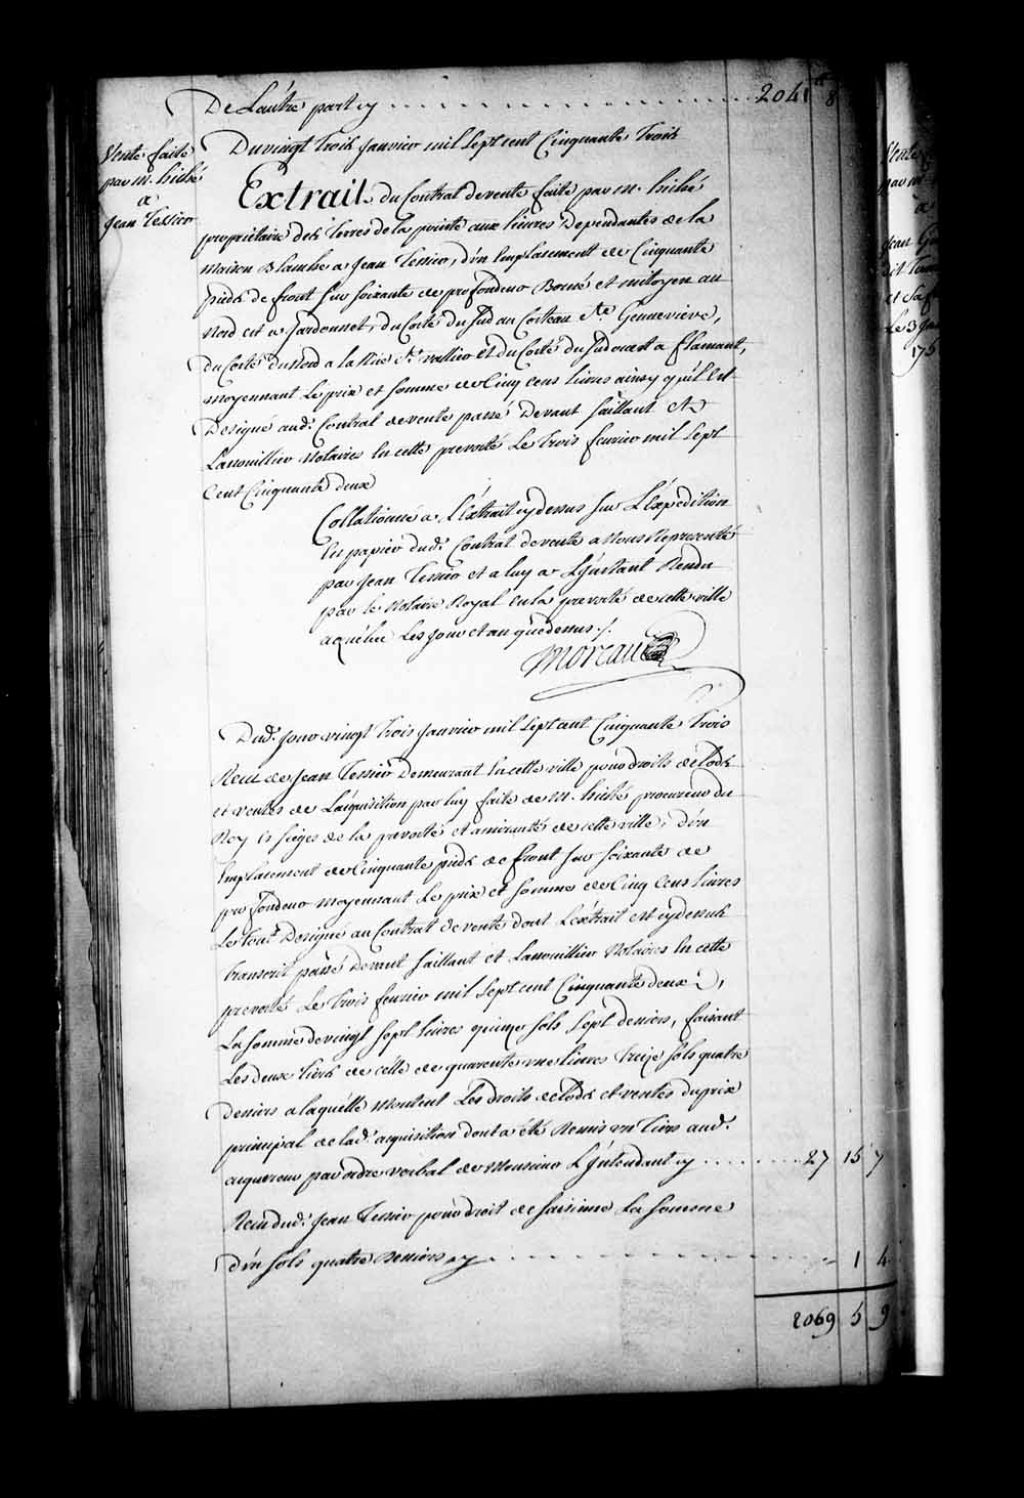 De L'autre part cy ........ 2041tt 8
Vente faite
par m. hiché
a
Jean Tessier
Du vingt Trois Janvier mil Sept cent Cinquante Trois
Extrait du Contrat de vente faite par m. hiché
proprietaire des Terres de la pointe aux lievres Dependantes de la
Maison Blanche a Jean Tessier, d'un Emplasement de Cinquante
pieds de front sur soixante de profondeur Borné et mitoyen au
Nord est a Jardonnet, du Costé du Sud au Costeau Ste Gennevieve,
du Costé du Nord a la Rüe St. vallier et du Costé du Sudouest a flamant,
moyennant Le prix et somme de Cinq cens livres ainsy qu'il Est
Designé aud. Contrat de vente passé Devant Saillant et
Lanouillier Notaires En cette prevosté Le Trois fevrier mil Sept
Cent Cinquante deux
Collationné a L'Extrait cy dessus sur L'Expedition
En papier dud. Contrat de vente a Nous Representé
par Jean Tessier et a luy a L'Jnstant Rendu
par le Notaire Royal en la prevosté de cette ville
a québec Les Jour et an que dessus ./.
Moreau
Dud. Jour vingt Trois Janvier mil Sept cent Cinquante Trois
Receu de Jean Tessier Demeurant En cette ville pour droits de Lods
et ventes de L'acquisition par luy faite de M. hiché procureur du
Roy Es sieges de la prevosté et amirauté de cette ville, d'un
Emplasement de Cinquante pieds de front sur soixante de
profondeur moyennant Le prix et somme de Cinq Cens livres
Le tout Designé au Contrat de vente dont L'extrait est cy dessus
transcrit passé Devant Saillant et Lanouillier Notaires En cette
prevosté Le Trois fevrier mil Sept cent Cinquante deux,
La Somme de vingt Sept livres quinze sols Sept deniers, faisant
Les deux tiers de celle de quarente une livres Treize sols quatre
deniers a laquelle montent Les droits de Lods et ventes du prix
principal de lad. acquisition dont a été Remis un Tiers aud.
acquereur par ordre verbal de Monsieur L'Jntendant cy ........ 27 15 7
Receu dud. Jean Tessier pour droit de saisinne La Somme
d'un sols quatre Deniers cy ........ 1 4
2069 5 9